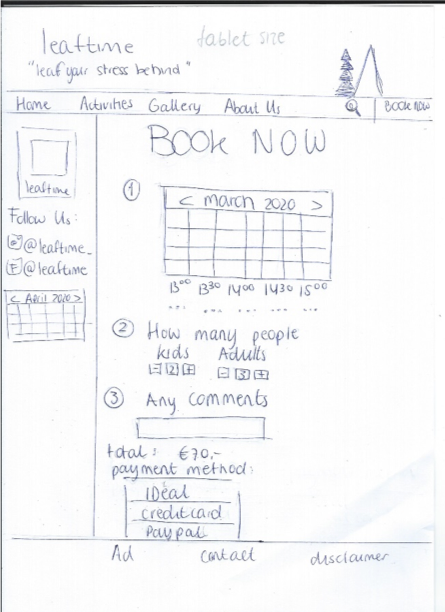 leaftime
tablet size
"leaf your stress behind"
Home Activities Gallery About Us BOOK NOW
BOOK NOW
leaftime
Follow Us:
@leaftime_
F @leaftime
< April 2020 >
1
< march 2020 >
13⁰⁰ 13³⁰ 14⁰⁰ 14³⁰ 15⁰⁰
2 How many people
kids Adults
- 2 + - 3 +
3 Any comments
total: €70,-
payment method:
IDeal
creditcard
Paypal
Ad contact disclaimer